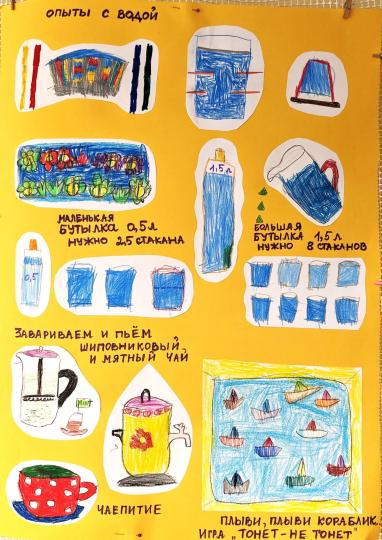 ОПЫТЫ С ВОДОЙ
1,5 л
МАЛЕНЬКАЯ
БУТЫЛКА 0,5 л
НУЖНО 2,5 СТАКАНА
БОЛЬШАЯ
БУТЫЛКА 1,5 л
НУЖНО 8 СТАКАНОВ
0,5
ЗАВАРИВАЕМ И ПЬЁМ
ШИПОВНИКОВЫЙ,
И МЯТНЫЙ ЧАЙ
ЧАЕПИТИЕ
ПЛЫВИ, ПЛЫВИ КОРАБЛИК...
ИГРА „ТОНЕТ-НЕ ТОНЕТ"